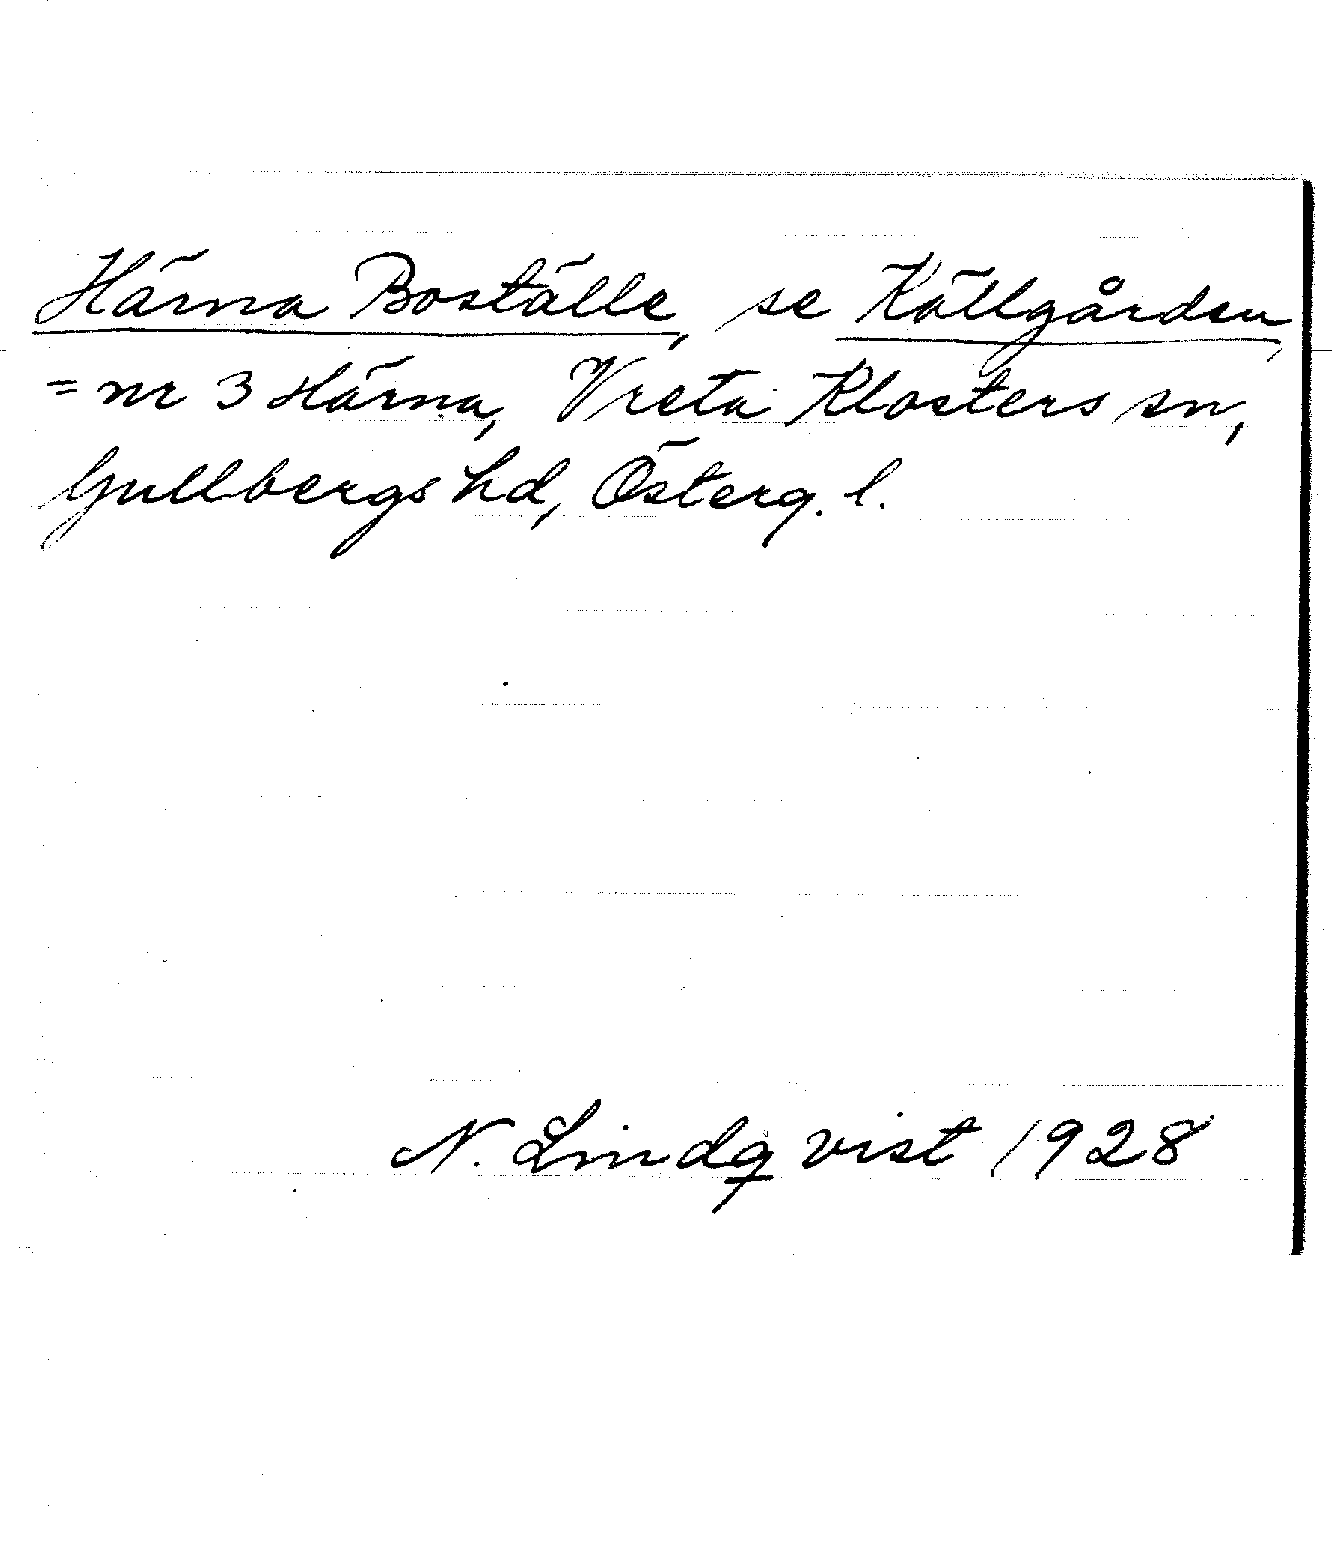 Härna Boställe, se Källgården,
= nr 3 Härna, Vreta Klosters sn,
Gullbergs hd, Österg. l.
N. Lindqvist 1928